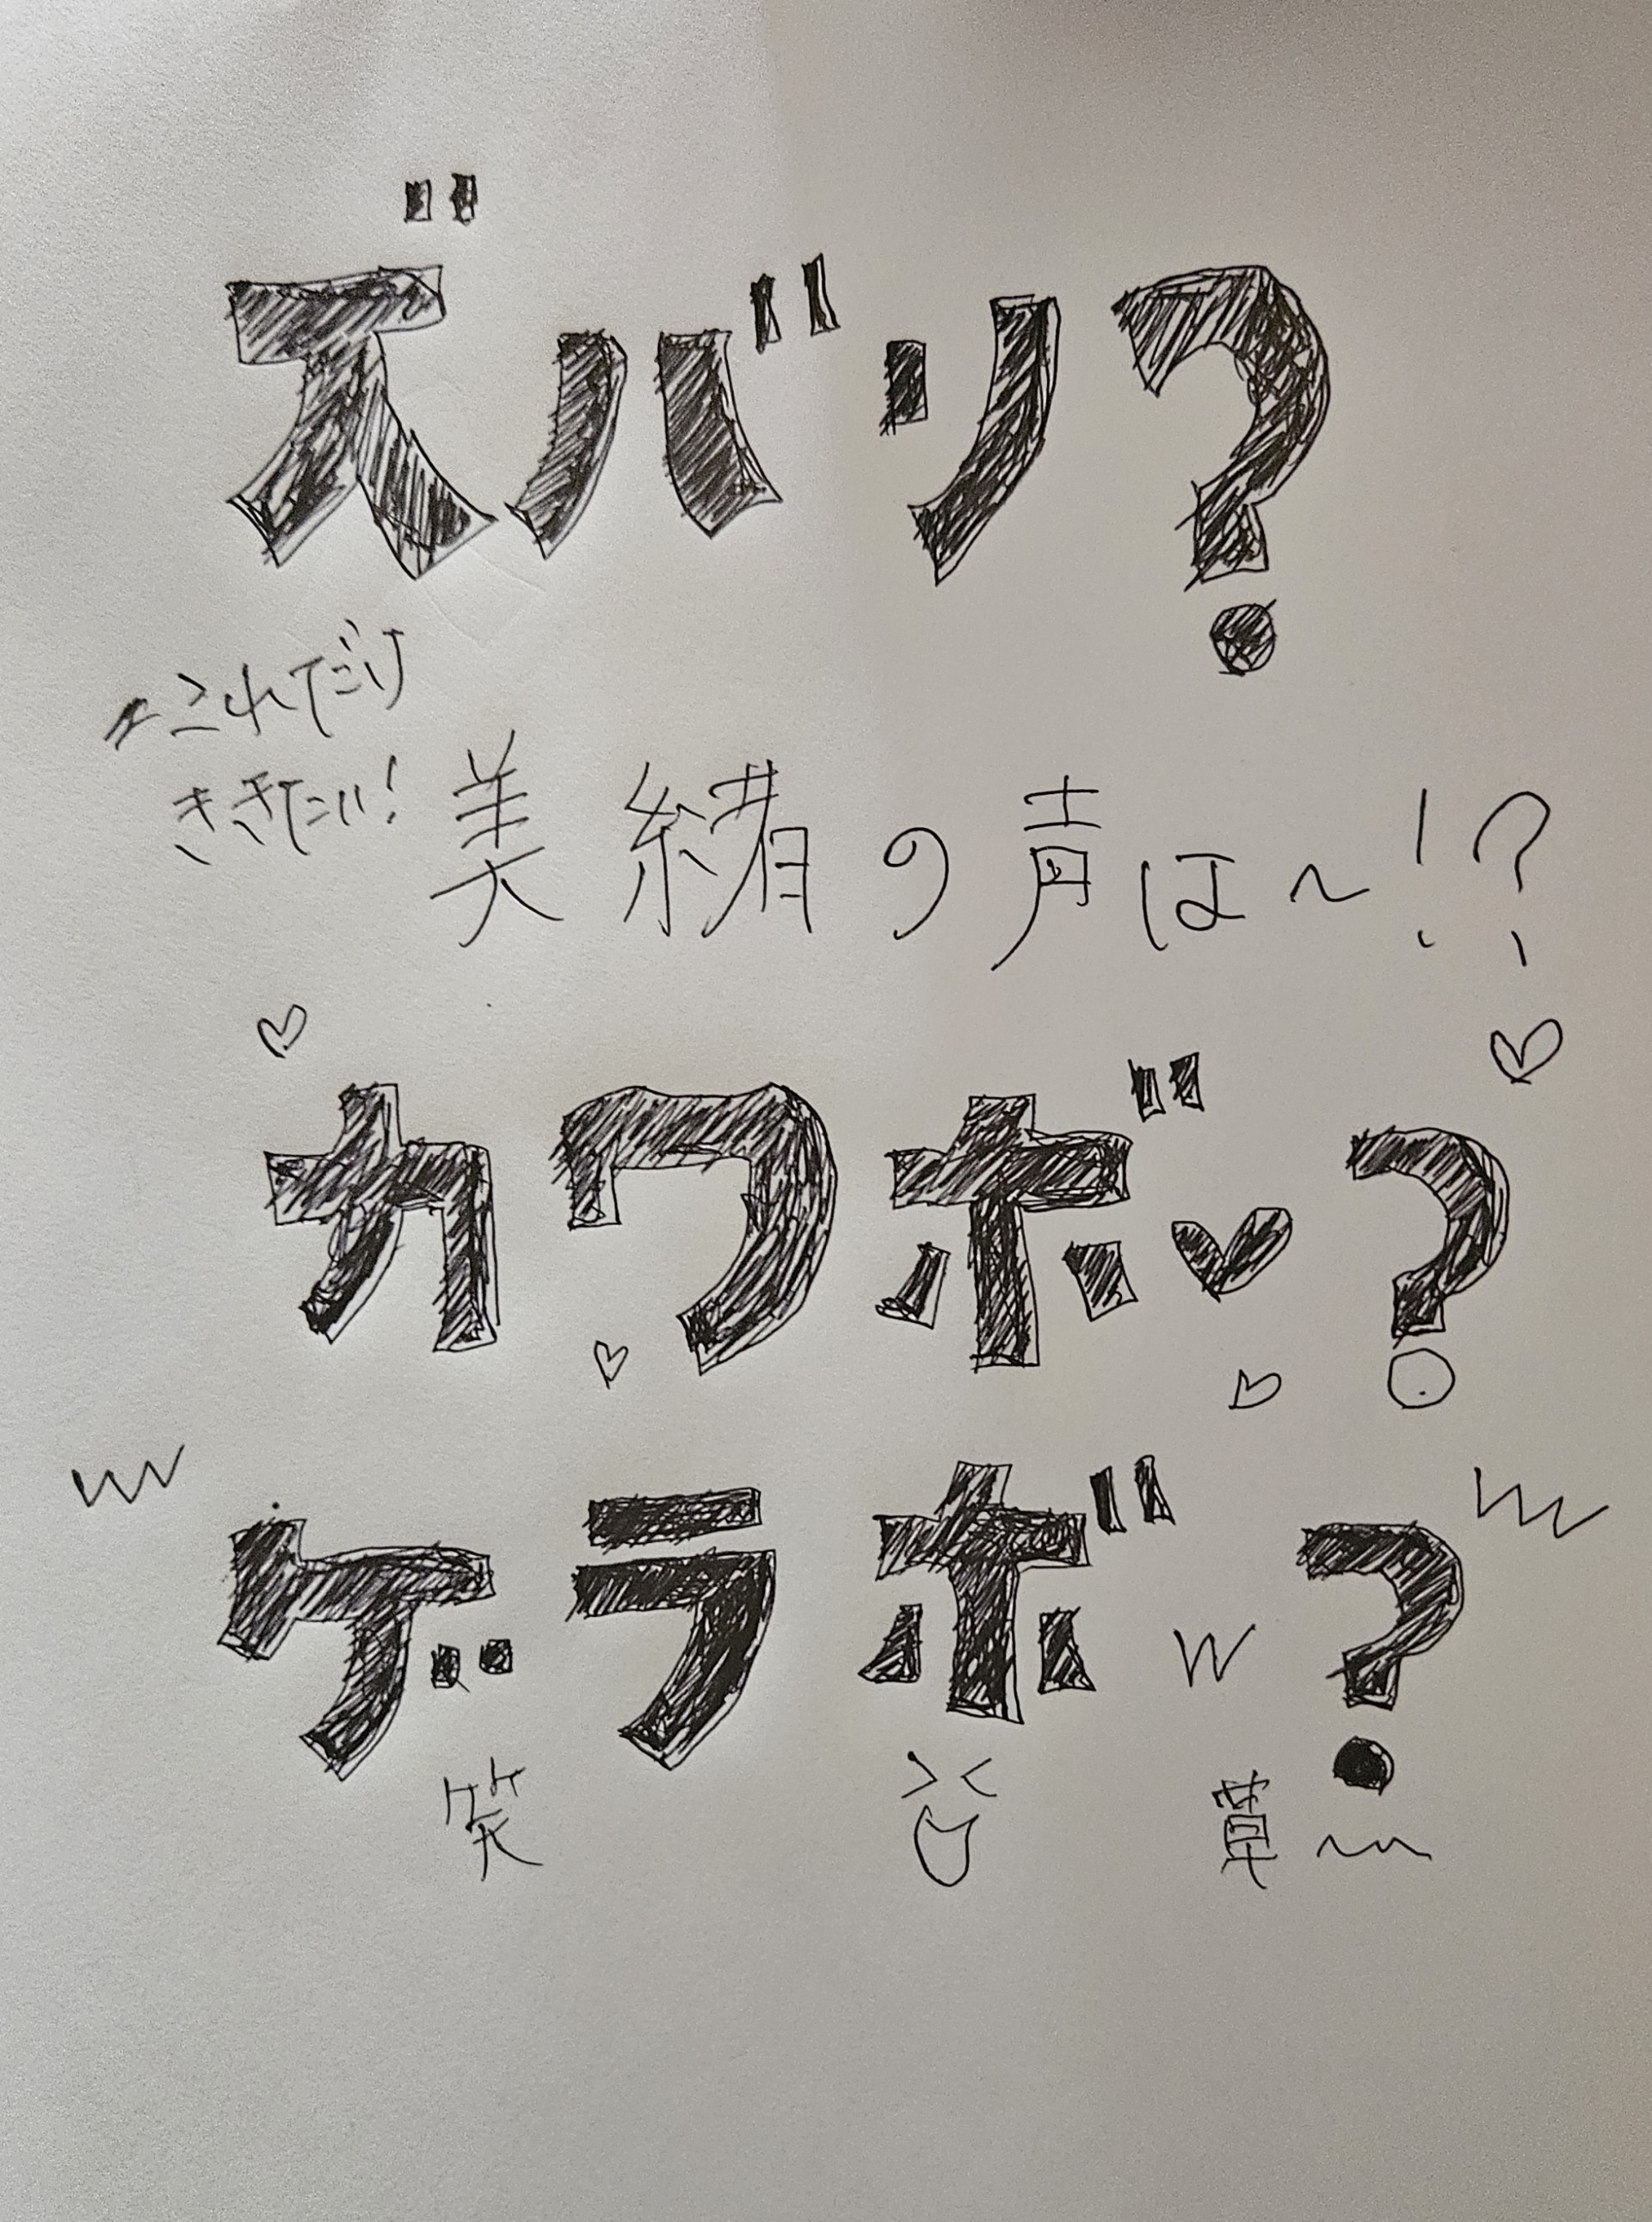 ズバリ?
これだけ
ききたい!
美緒の声は~!?
♡ ♡
カワボ♥?
♡ ♡
www www
ゲラボw?
笑 草〜